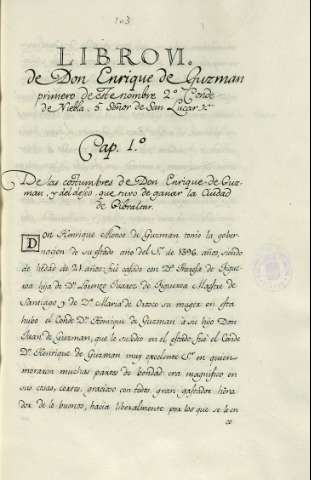 103
LIBRO VI.
de Don Enrique de Guzman
primero de este nombre 2º Conde
de Niebla, 5 Señor de San Lucar &ª
Cap. 1.º
De las costumbres de Don Enrique de Guz-
man, y del deseo que tuvo de ganar la Ciudad
de Gibraltar.
DON Henrique Alonso de Guzman tomó la gober-
nacion de su estado año del Sr. de 1396 años, siendo
de hedad de 21 años: fue casado con Dª Teresa de Figue-
roa hija de Dn Lorenzo Suarez de Figueroa Maestre de
Santiago y de Dª Maria de Orozco su muger en esta
hubo el Conde Dn Henrique de Guzman a su hijo Don
Juan de Guzman, que le sucedio en el estado, fue el Conde
Dn Henrique de Guzman muy excelente Sr. en quien
moraron muchas partes de bondad era magnifico en
sus cosas, cortes, gracioso con todos, gran gastador honra
dor de lo bueno, hacia liberalmente por los que se le en
co